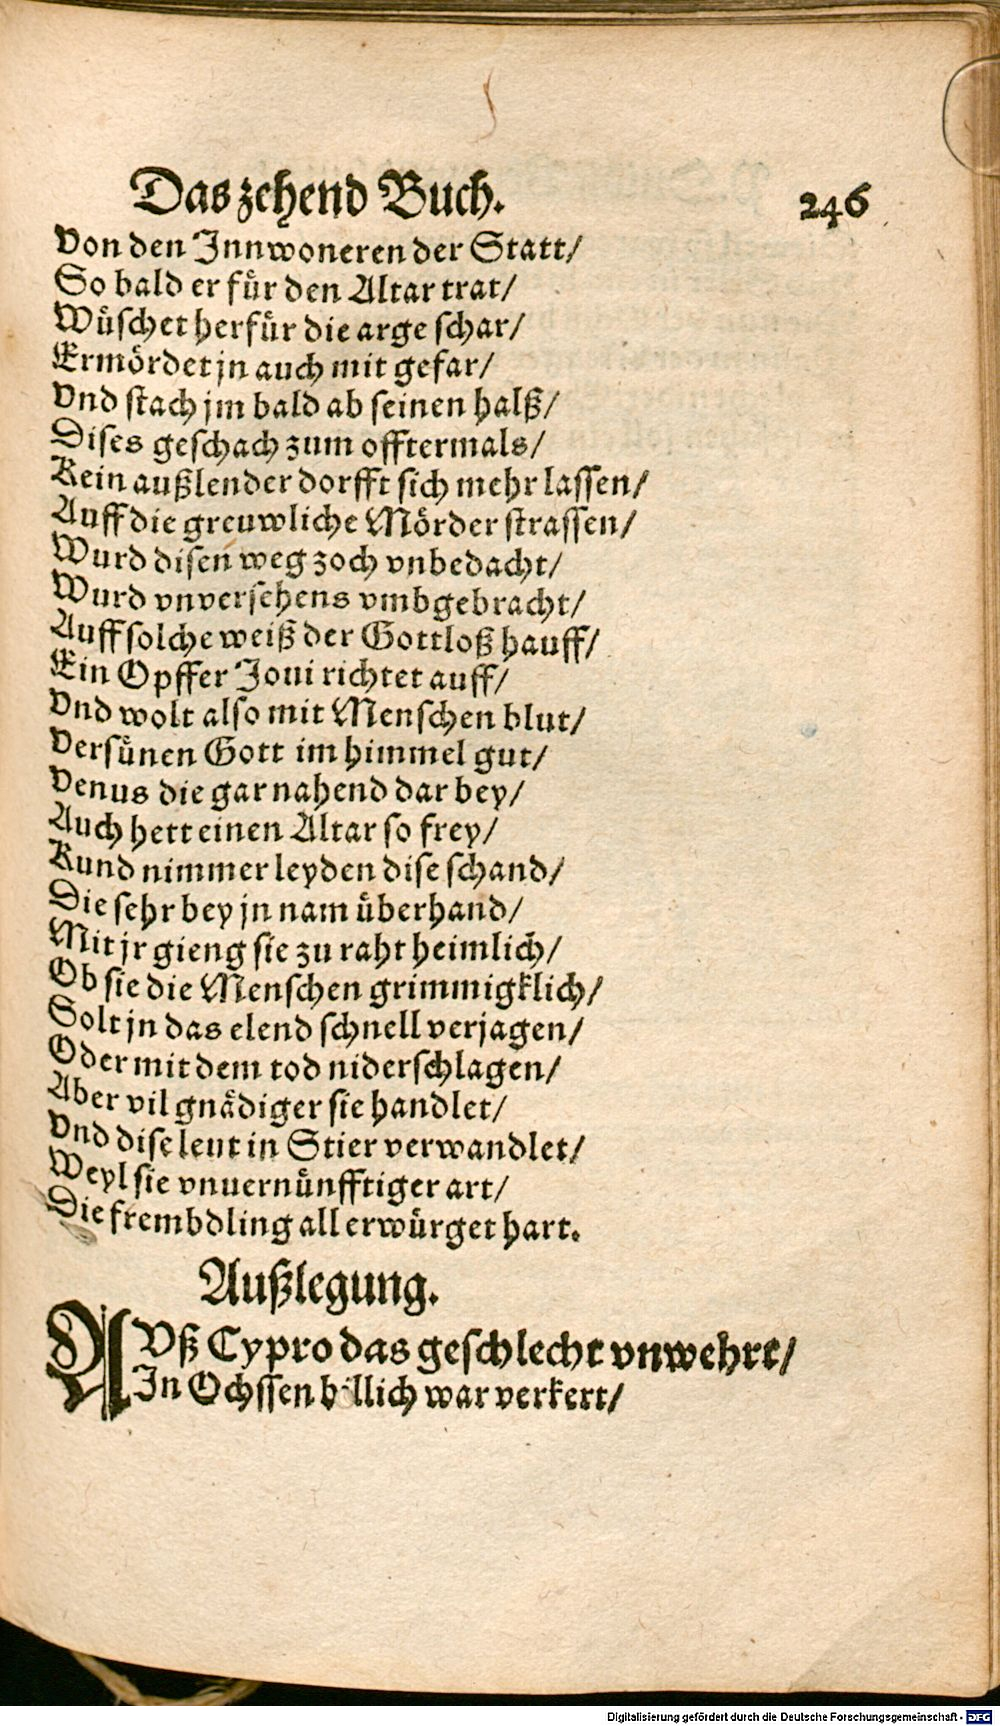 Das zehend Buch. 246
Von den Innwoneren der Statt/
So bald er für den Altar trat/
Wüschet herfür die arge schar/
Ermördet jn auch mit gefar/
Vnd stach jm bald ab seinen halß/
Dises geschach zum offtermals/
Kein außlender dorfft sich mehr lassen/
Auff die greuwliche Mörder strassen/
Wurd disen weg zoch vnbedacht/
Wurd vnversehens vmbgebracht/
Auff solche weiß der Gottloß hauff/
Ein Opffer Joui richtet auff/
Vnd wolt also mit Menschen blut/
Versünen Gott im himmel gut/
Venus die gar nahend dar bey/
Auch hett einen Altar so frey/
Kund nimmer leyden dise schand/
Die sehr bey jn nam überhand/
Mit jr gieng sie zu raht heimlich/
Ob sie die Menschen grimmigklich/
Solt jn das elend schnell verjagen/
Oder mit dem tod niderschlagen/
Aber vil gnädiger sie handlet/
Vnd dise leut in Stier verwandlet/
Weyl sie vnuernünfftiger art/
Die frembdling all erwürget hart.
Außlegung.
AVß Cypro das geschlecht vnwehrt/
In Ochssen billich war verkert/
Digitalisierung gefördert durch die Deutsche Forschungsgemeinschaft - DFG